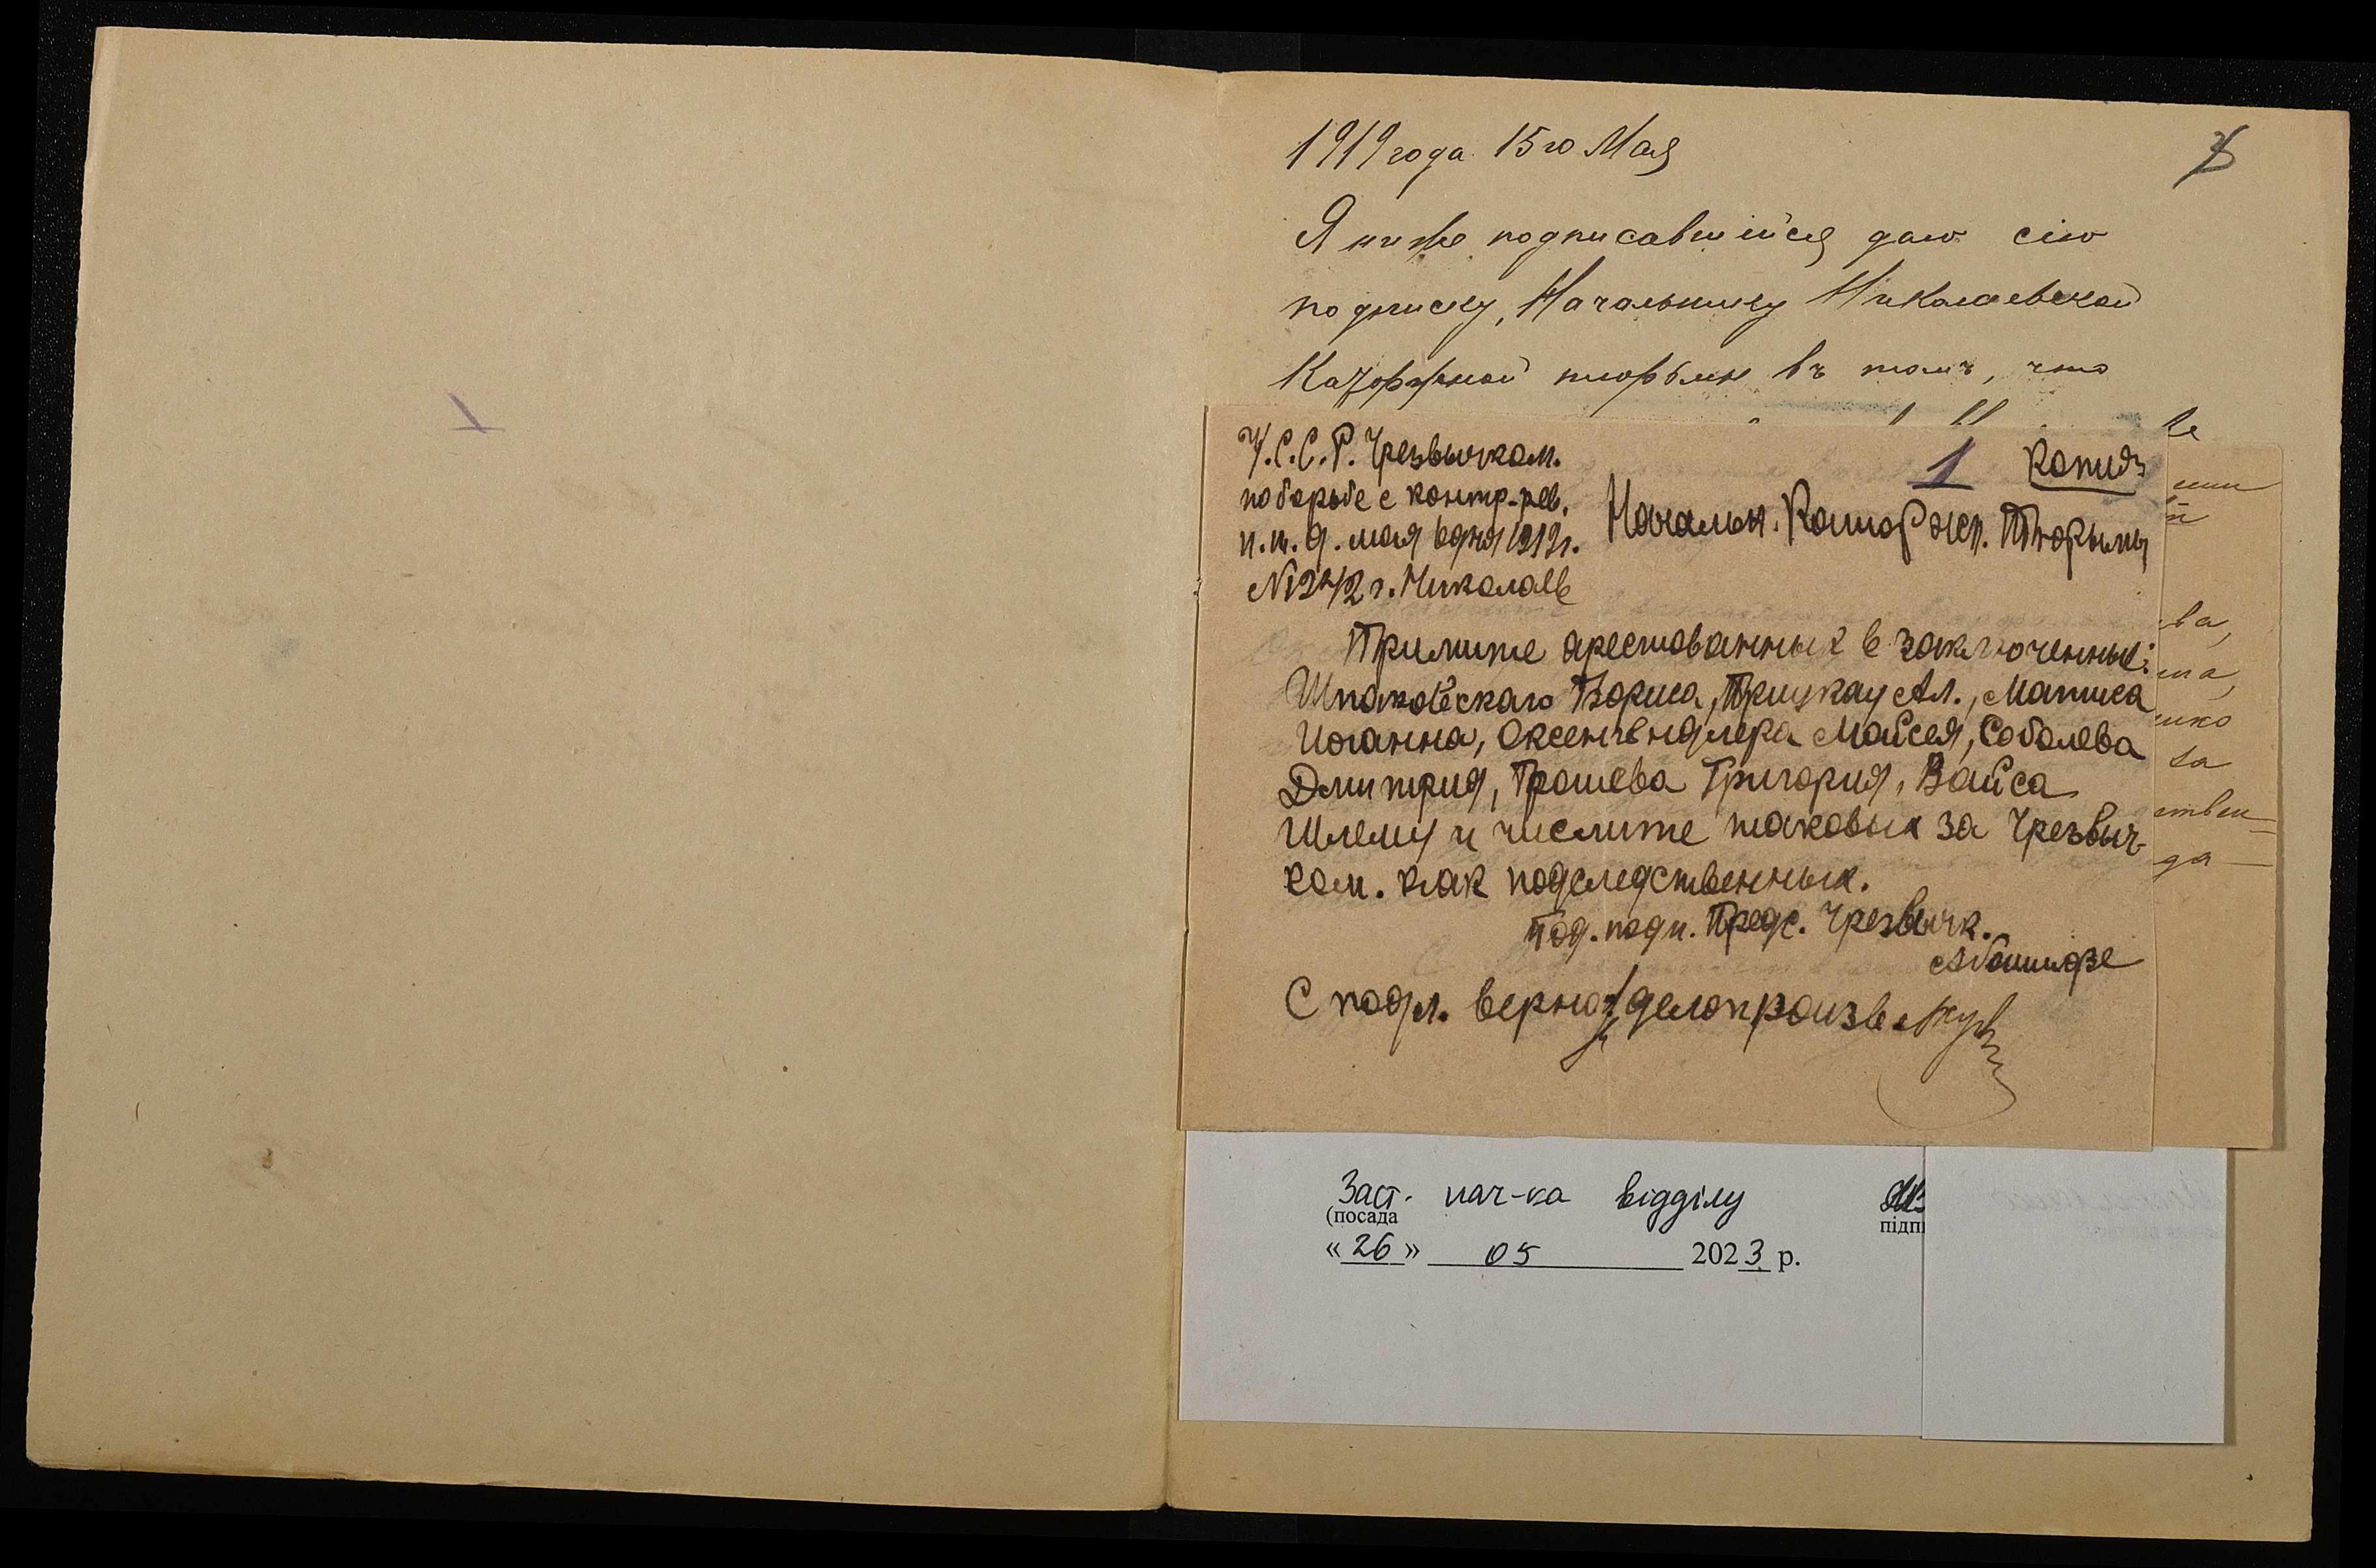 1919 года 15го Мая
Я ниже подписавшийся даю сію
подписку, Начальнику Николаевской
Каторжной тюрьмы въ томъ, что
У.С.С.Р. Чрезвычком.
по борьбе с контр-рев.
мая 6 дня 1919г.
г. Николаев
1 Копия
Начальн. Каторжн. Тюрьмы
Примите арестованных в заключенные:
Шпаковскаго Бориса, Ал., Матиса
Иоганна, Оксенгендлера Мойсея, Соболева
Дмитрия, Трошева Григория, Вайса
Шлему и числите таковых за Чрезвыч-
ком. как подследственных.
Под. подп. Предс. Чрезвычк.
Абашидзе
С подл. верно: делопроизв.
ва,
та,
шко
за
ствен-
да
Заст. нач-ка відділу
(посада
підпи
« 26 » 05 2023 р.